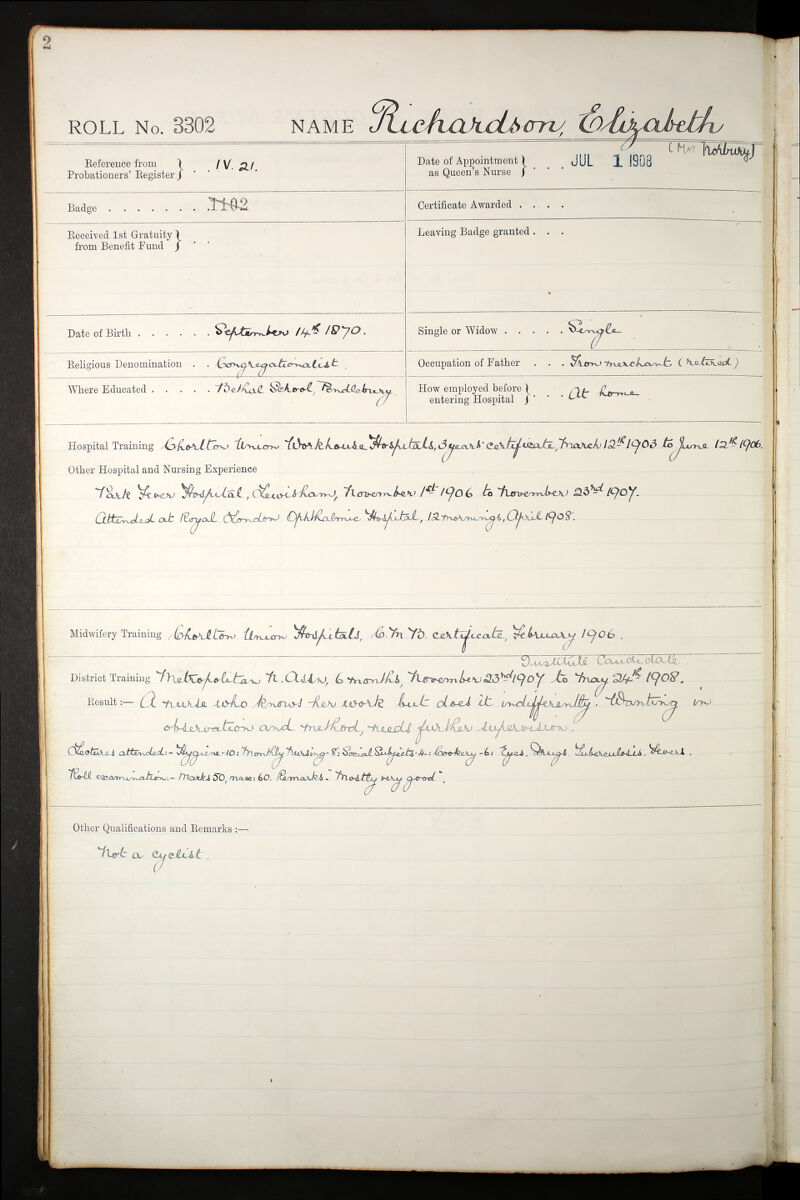 2
ROLL No. 3302 NAME Richardson, Elizabeth
(Mrs Norbury)
Reference from Probationers' Register } . . IV. 21.
Date of Appointment as Queen's Nurse } . . . JUL 1 1908
Badge . . . . . . . 1102
Certificate Awarded . . . .
Received 1st Gratuity from Benefit Fund } . .
Leaving Badge granted . . .
Date of Birth . . . . . . September 14th 1870.
Single or Widow . . . . . Single
Religious Denomination . . Congregationalist.
Occupation of Father . . . Iron merchant. (retired.)
Where Educated . . . . . Bethel School, Pendlebury.
How employed before entering Hospital } . . . At home.
Hospital Training Chorlton Union Workhouse Hospitals, 3 years' certificate, March 12th 1903 to June 12th 1906.
Other Hospital and Nursing Experience
Park Fever Hospital, Lewisham, November 1st 1906 to November 23rd 1907.
Attended at Royal London Ophthalmic Hospital, 12 mornings, April 1908.
Midwifery Training Chorlton Union Hospitals, C.M.B. certificate, February 1906.
Institute Candidate.
District Training Metropolitan N. Assn, 6 months, November 23rd 1907 to May 24th 1908.
Result:— A nurse who knows her work but does it indifferently. Wanting in
observation and method, needs further supervision.
Lectures attended:- Hygiene-10: Monthly Nursing-8: Social Subjects-4: Cookery-6: Eyes. Drugs. Tuberculosis. Fevers.
Roll examination:- Marks 50, max: 60. Remarks - "Mostly very good".
Other Qualifications and Remarks :—
Not a cyclist.